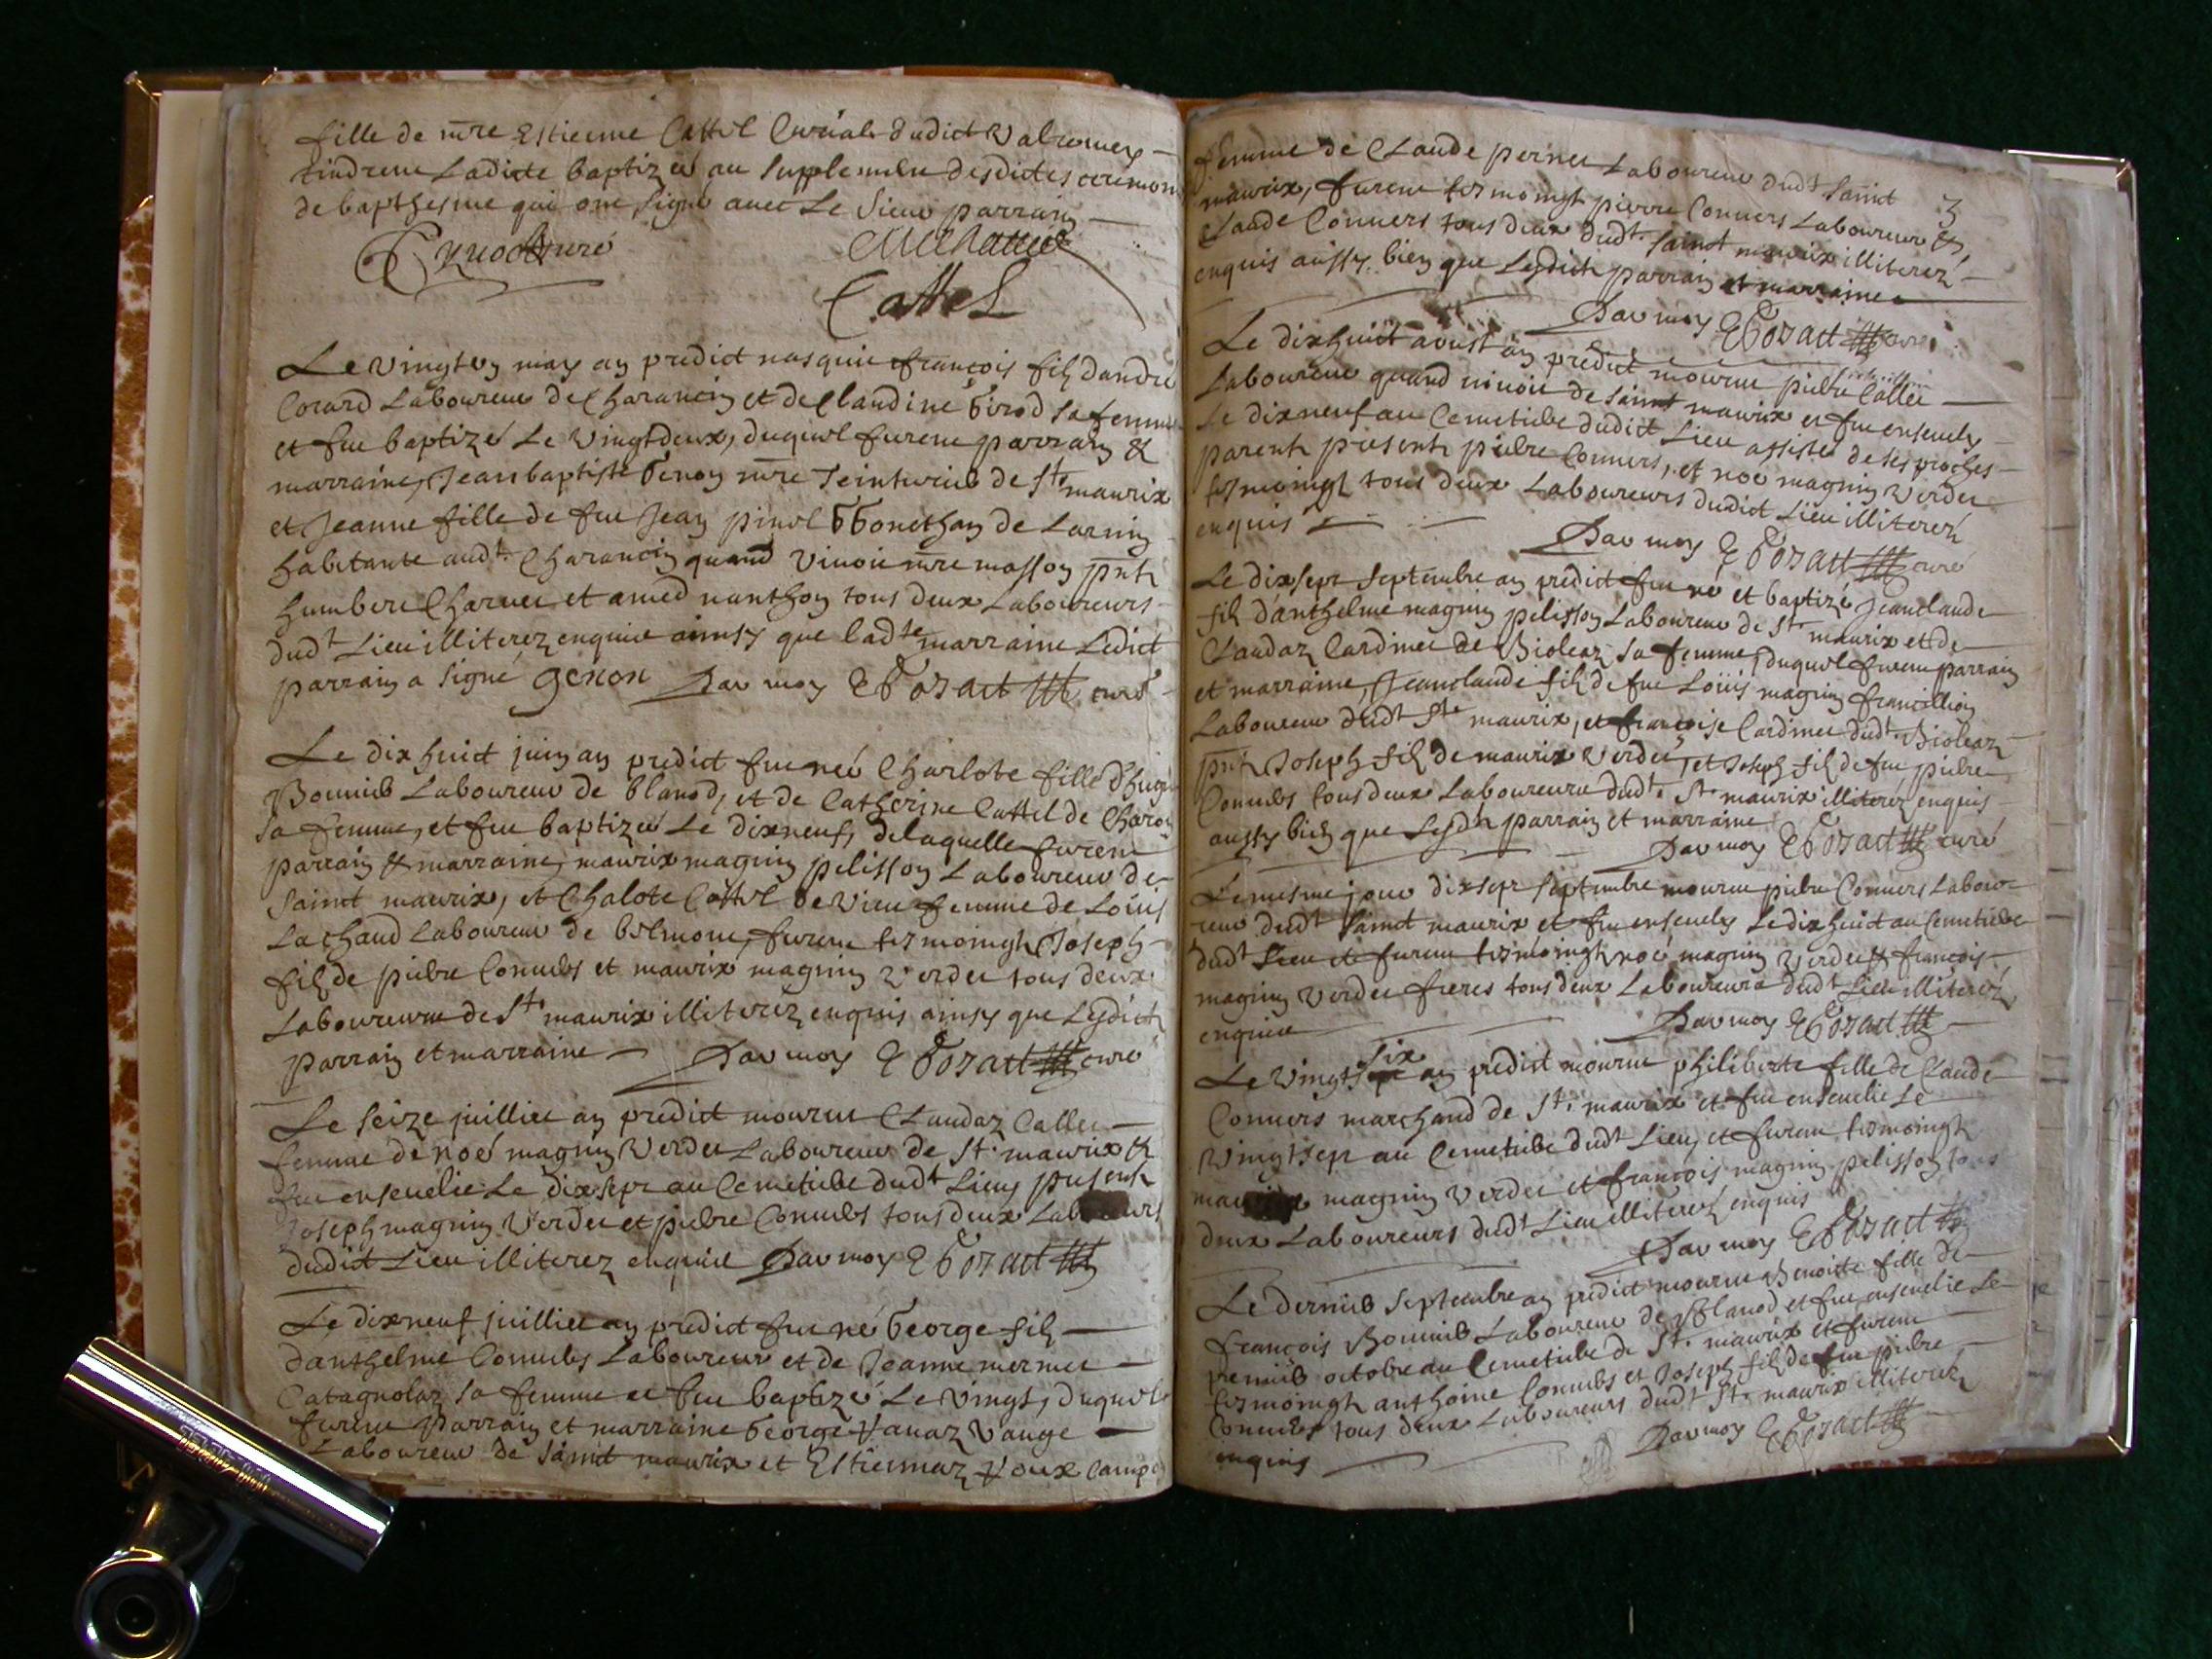 fille de mre Estienne Cattel Curial dudict Valromey
tindrent Ladicte baptizeé au supplement desdictes ceremon
de bapthesme qui ont signé auec Le Sieur parrain
curé
Cattel
Le vingt un may an predict nasquit françois filz dandré
Corard Laboureur de Charancin et de Claudine Girod sa femme
et fut baptizé Le Vingtdeux, duquel furent parrain &
marraine, Jeanbaptiste Genon mre Teinturier de St maurix
et Jeanne fille de feu Jean pinel de
habitante audt. Charancin quand Vivoit mre masson pnts
humbert Charuet et amed nanthon tous deux Laboureurs
dudt Lieu illiterez enquis ainsy que ladte marraine Ledict
parrain a signé genon Par moy Bozart curé
Le dix huict juin an predict fut neé Charlote fille d'hugue
Bonnier Laboureur de blanod, et de Catherine Cattel de Charon
sa femme, et fut baptizeé Le dixneuf, delaquelle furent
parrain & marraine, maurix magnin pelisson Laboureur de
saint maurix, et Chalote Cattel de Vieu femme de Loüis
Lachaud Laboureur de belmont, furent tesmoingtz Joseph
filz de pierre Conuers et maurix magnin Verdet tous deux
Laboureurs de St. maurix illiterez enquis ainsy que Lesdicts
parrain et marraine Par moy Bozart curé
Le seize juilliet an predict mourut Claudaz Callet
femme de noé magnin Verdet Laboureur de St. maurix &
fut enseuelie Le dixsept au Cemetiere dudt Lieu, presents
Joseph magnin Verdet et pierre Conuers tous deux Lab urs
dudict Lieu illiterez enquis Par moy Bozart
Le dixneuf juilliet an predict fut né George filz
danthelme Conuers Laboureur et de Jeanne mermet
Catagnolaz sa femme et fut baptizé Le Vingt, duquel
furent parrain et marraine George Vauge
Laboureur de saint maurix et Estiennaz
femme de Claude pernet Laboureur dudt saint
maurix, furent tesmoingtz pierre Conuers Laboureur &
3
Claude Conuers tous deux dudt. saint maurix illiterez
enquis aussy bien que Lesdicts parrain et marraine
Par moy Bozart curé
Le dixhuict aoust an predict mourut pierre Callet
Laboureur quand viuoit de saint maurix et fut enseuely
Le dixneuf au Cemetiere dudict Lieu assisté de ses proches
parents presents pierre Conuers, et noé magnin Verdet
tesmoingtz tous deux Laboureurs dudict Lieu illiterez
enquis
Par moy Bozart curé
Le dixsept septembre an predict fut né et baptizé Jeanclaude
filz d'anthelme magnin pelisson Laboureur de St. maurix et de
Claudaz Cardinet de Bioleaz sa femme, duquel furent parrain
et marraine, Jeanclaude filz de feu Loüis magnin francillion
Laboureur dudt St. maurix, et françoise Cardinet dudt. Bioleaz
pnts Joseph filz de maurix Verdet, et Joseph filz de feu pierre
Conuers tous deux Laboureurs dudt. St. maurix illiterez enquis
aussy bien que Lesdts parrain et marraine
Par moy Bozart curé
Le mesme jour dixsept septembre mourut pierre Conuers Labou-
reur dudt saint maurix et fut enseuely Le dixhuict au Cemetiere
dudt Lieu et furent tesmoingtz noé magnin Verdet & françois
magnin Verdet freres tous deux Laboureurs dudt Lieu illiterez
enquis
Par moy Bozart
six
Le Vingt an predict mourut philiberte fille de Claude
Conuers marchand de St. maurix et fut enseuelie Le
Vingtsept au Cemetiere dudt Lieu, et furent tesmoingtz
mau magnin Verdet et françois magnin pelisson tous
deux Laboureurs dudt Lieu illiterez enquis
Par moy Bozart
Le dernier septembre an predict mourut Benoitte fille de
françois Bonnier Laboureur de Blanod et fut enseuelie Le
premier octobre au Cemetiere de St. maurix et furent
tesmoingtz anthoine Conuers et Joseph filz de feu pierre
Conuers tous deux Laboureurs dudt St. maurix illiterez
enquis
Par moy Bozart